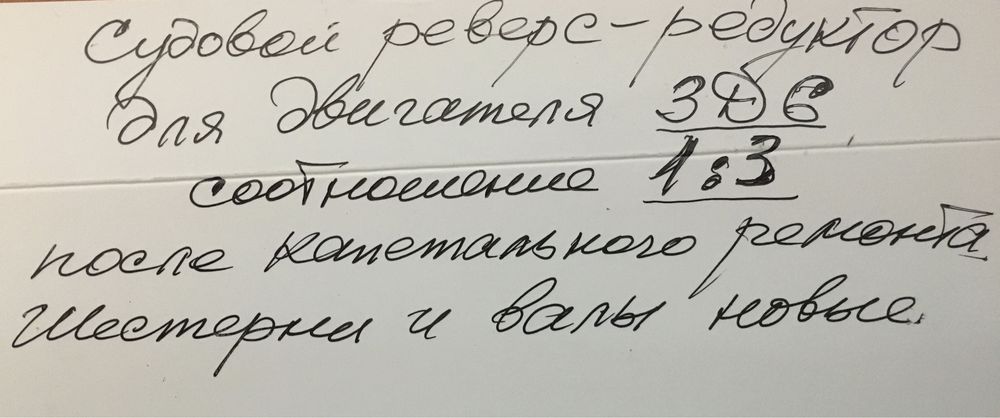 Судовой реверс-редуктор
для двигателя 3Д6
соотношение 1:3
после капетального ремонта
Шестерни и валы новые.